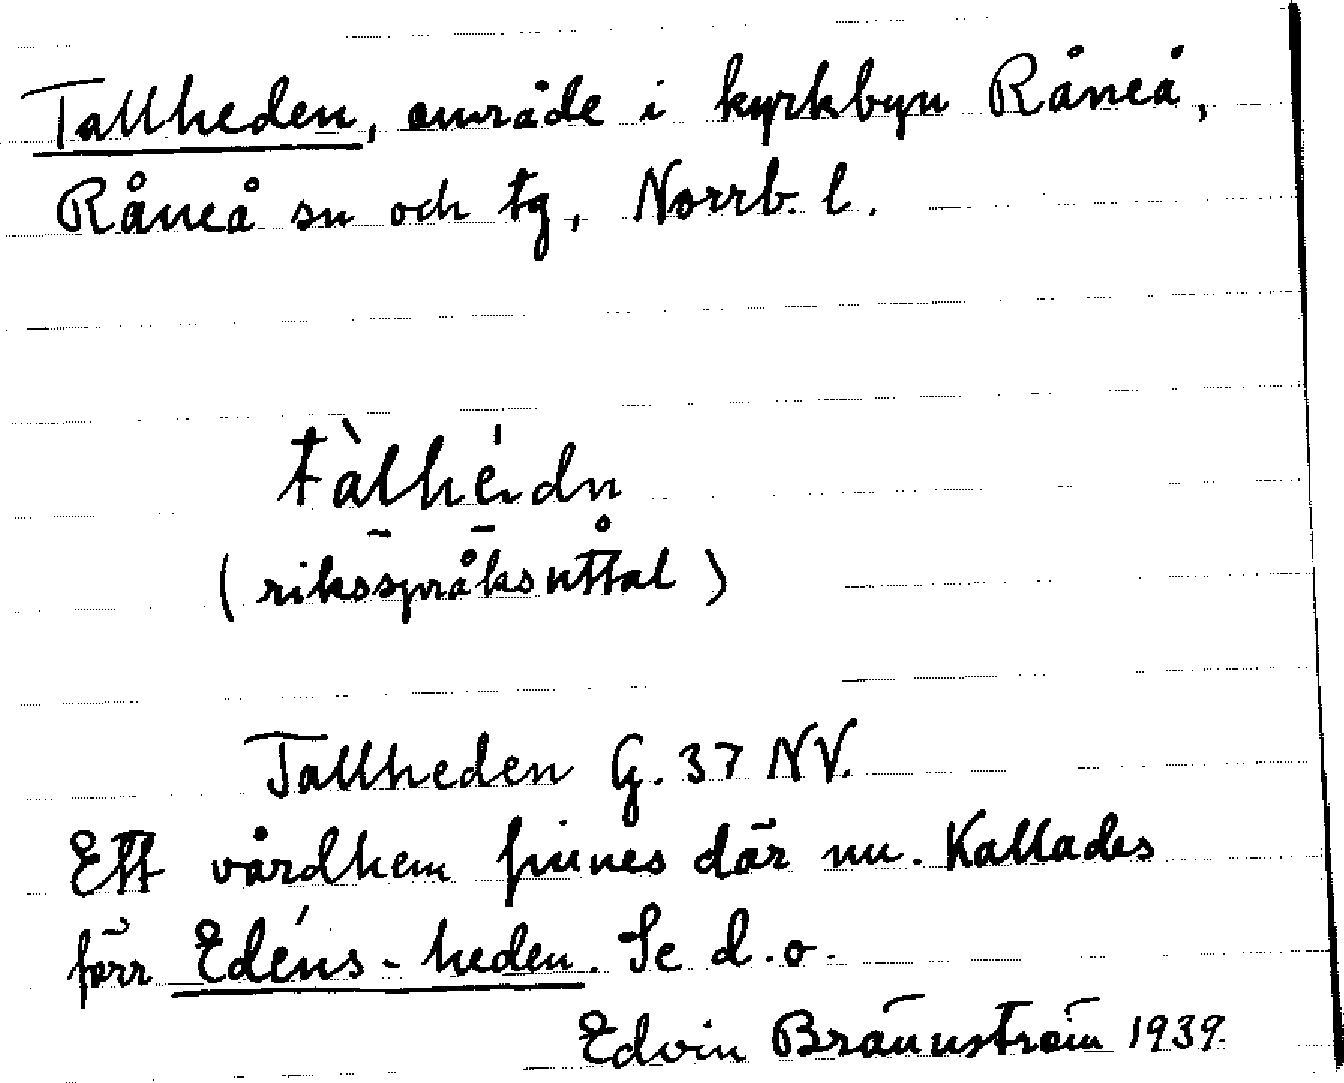 Tallheden, område i kyrkbyn Råneå,
Råneå sn och tg, Norrb. l.
tàlhé.dn
(riksspråksuttal)
Tallheden G. 37 NV.
Ett vårdhem finnes där nu. Kallades
förr Edéns-heden. Se d.o.
Edvin Brännström 1939.